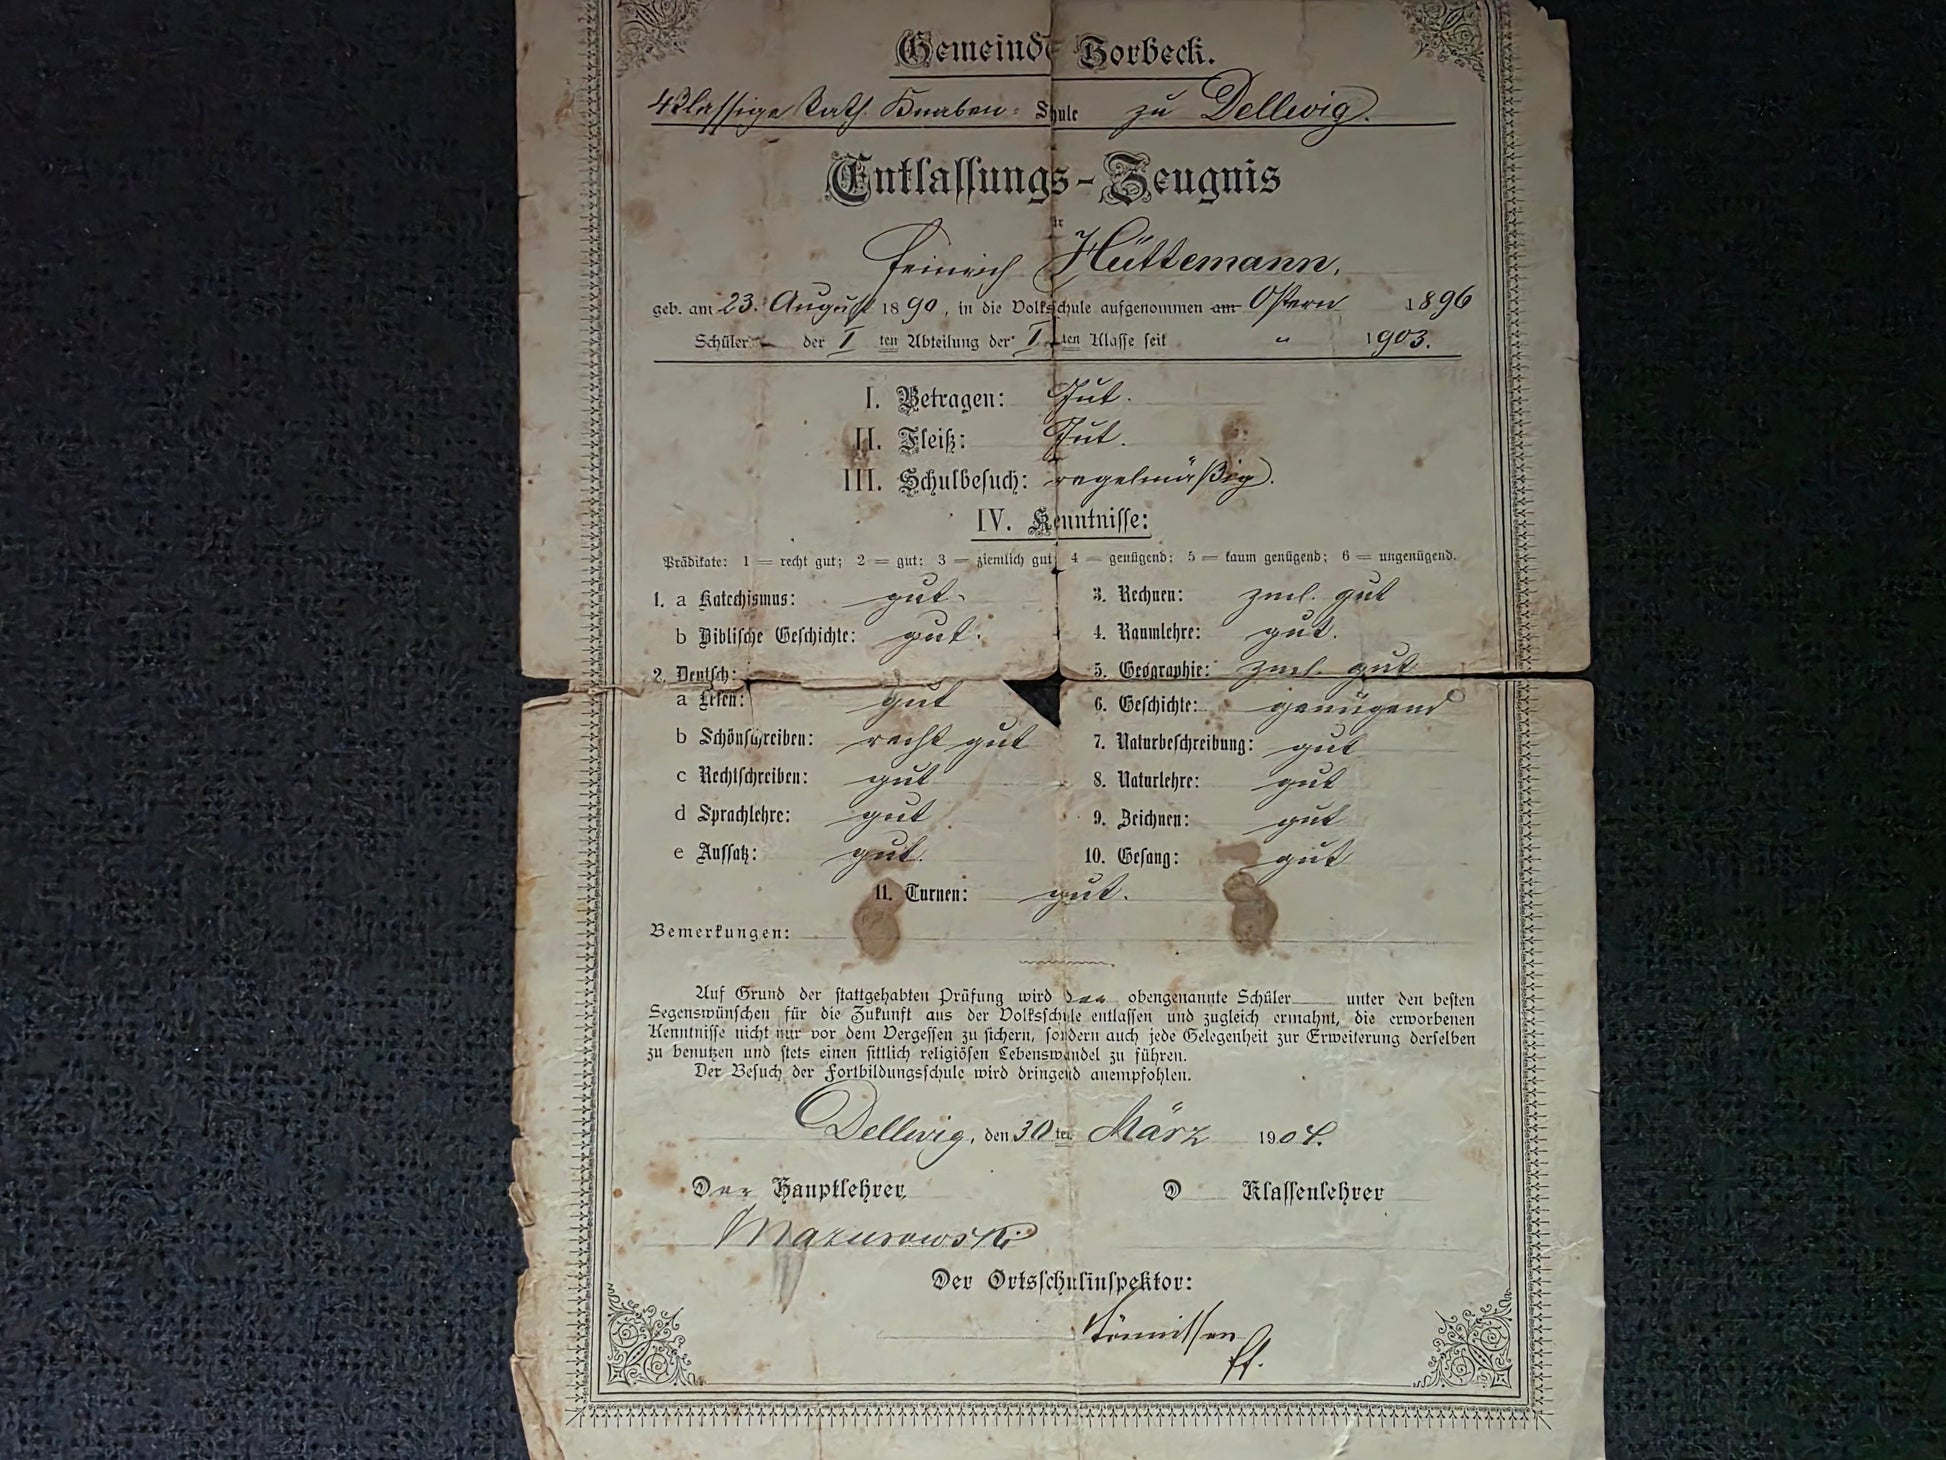 Gemeinde Borbeck.
4klassige kath. Knaben- Schule zu Dellwig.
Entlassungs-Zeugnis
für
Heinrich Hüttemann,
geb. am 23. August 1890, in die Volksschule aufgenommen am Ostern 1896
Schüler der I ten Abteilung der I ten Klasse seit " 1903.
I. Betragen: Gut.
II. Fleiß: Gut.
III. Schulbesuch: regelmäßig.
IV. Kenntnisse:
Prädikate: 1 = recht gut; 2 = gut; 3 = ziemlich gut; 4 = genügend; 5 = kaum genügend; 6 = ungenügend.
1. a Katechismus: gut.
b Biblische Geschichte: gut.
2. Deutsch:
a Lesen: gut
b Schönschreiben: recht gut
c Rechtschreiben: gut
d Sprachlehre: gut
e Aufsatz: gut.
3. Rechnen: zml. gut
4. Raumlehre: gut.
5. Geographie: zml. gut
6. Geschichte: genügend
7. Naturbeschreibung: gut
8. Naturlehre: gut
9. Zeichnen: gut
10. Gesang: gut
11. Turnen: gut.
Bemerkungen:
Auf Grund der stattgehabten Prüfung wird der obengenannte Schüler unter den besten
Segenswünschen für die Zukunft aus der Volksschule entlassen und zugleich ermahnt, die erworbenen
Kenntnisse nicht nur vor dem Vergessen zu sichern, sondern auch jede Gelegenheit zur Erweiterung derselben
zu benutzen und stets einen sittlich religiösen Lebenswandel zu führen.
Der Besuch der Fortbildungsschule wird dringend anempfohlen.
Dellwig, den 30 ten März 1904.
Der Hauptlehrer
Mazurowski
D Klassenlehrer
Der Ortsschulinspektor:
Tönnissen